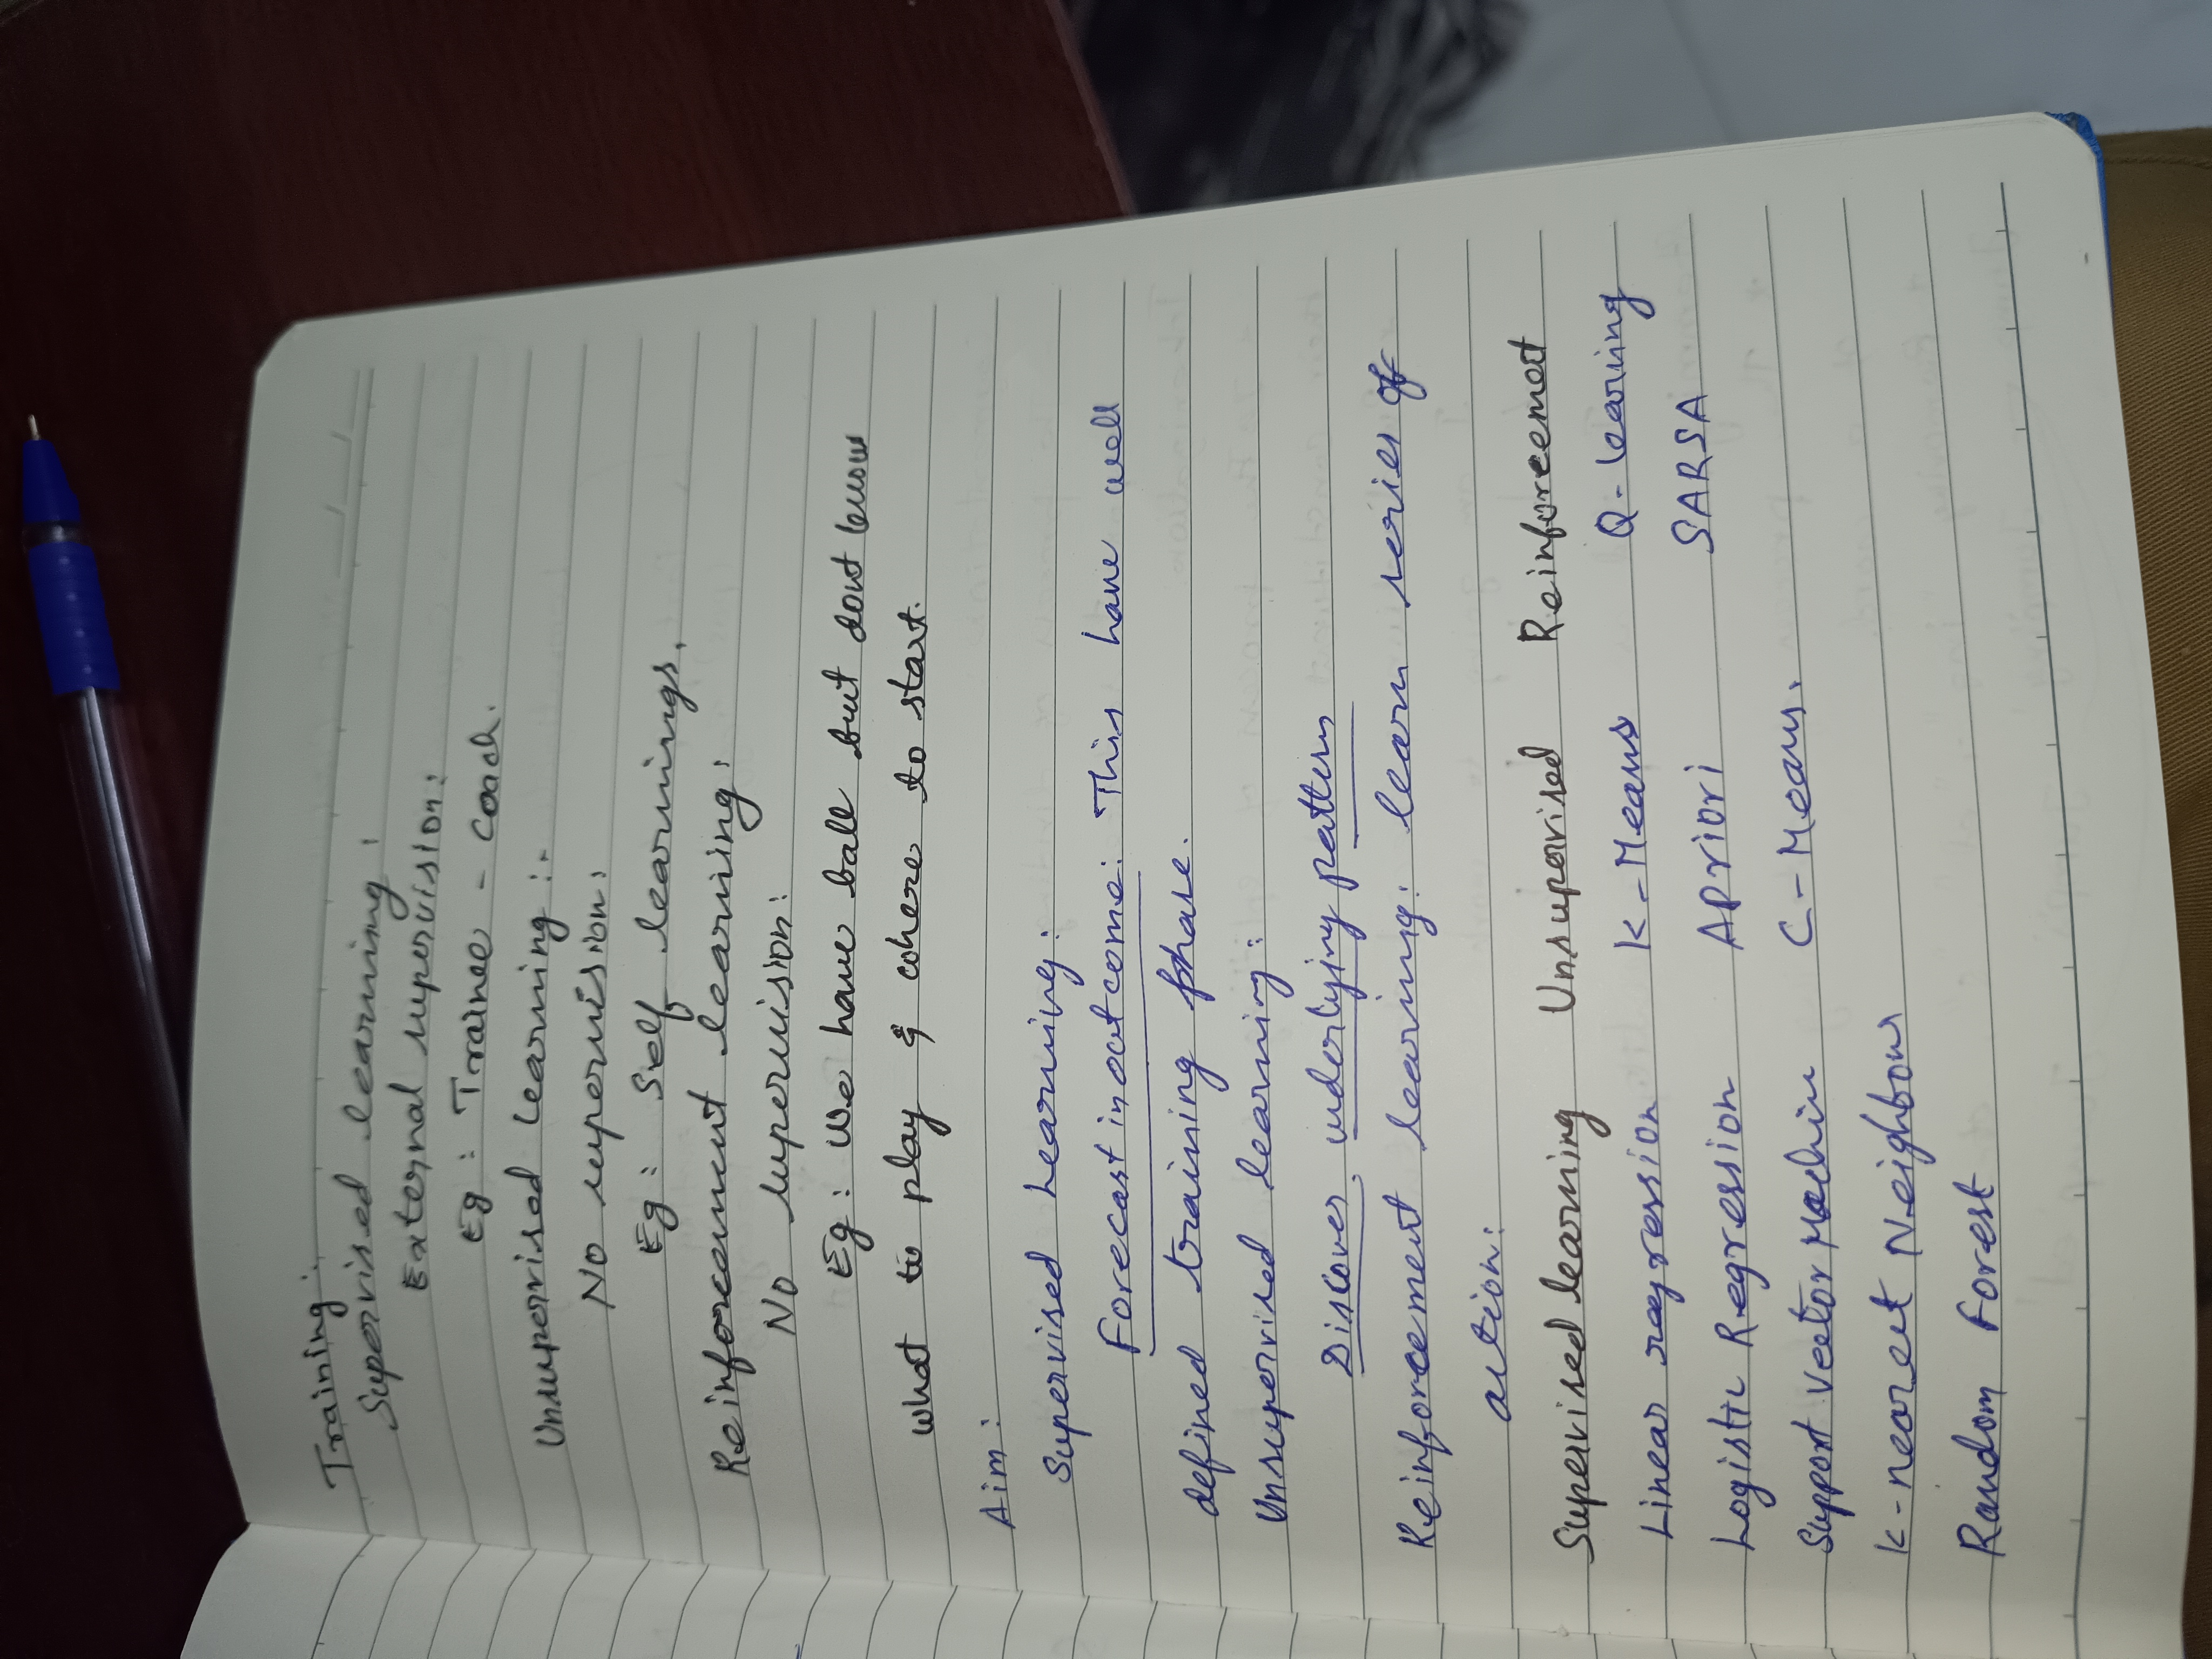 Training:
Supervised learning:
External supervision:
Eg: Trainee - Coach.
Unsupervised Learning:-
No supervision:
Eg: Self learnings.
Reinforcement learning:
No supervision:
Eg: We have ball but dont know
what to play & where to start.
Aim:
Supervised Learning:
Forecast in outcome: This have well
defined training phase.
Unsupervised learning:
Discover underlying pattern
Reinforcement learning: learn series of
action:
Supervised learning Unsupervised Reinforcement
Linear regression K-Means Q-learning
Logistic Regression Apriori SARSA
Support Vector Machine C-Means.
K-nearest Neighbour
Random Forest